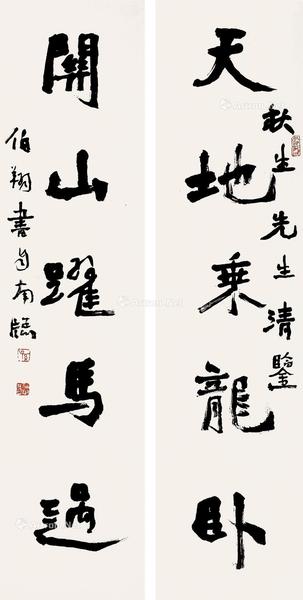 天地乘龍卧
秋生先生清鑒
開山躍馬過
伯翔書自南牖